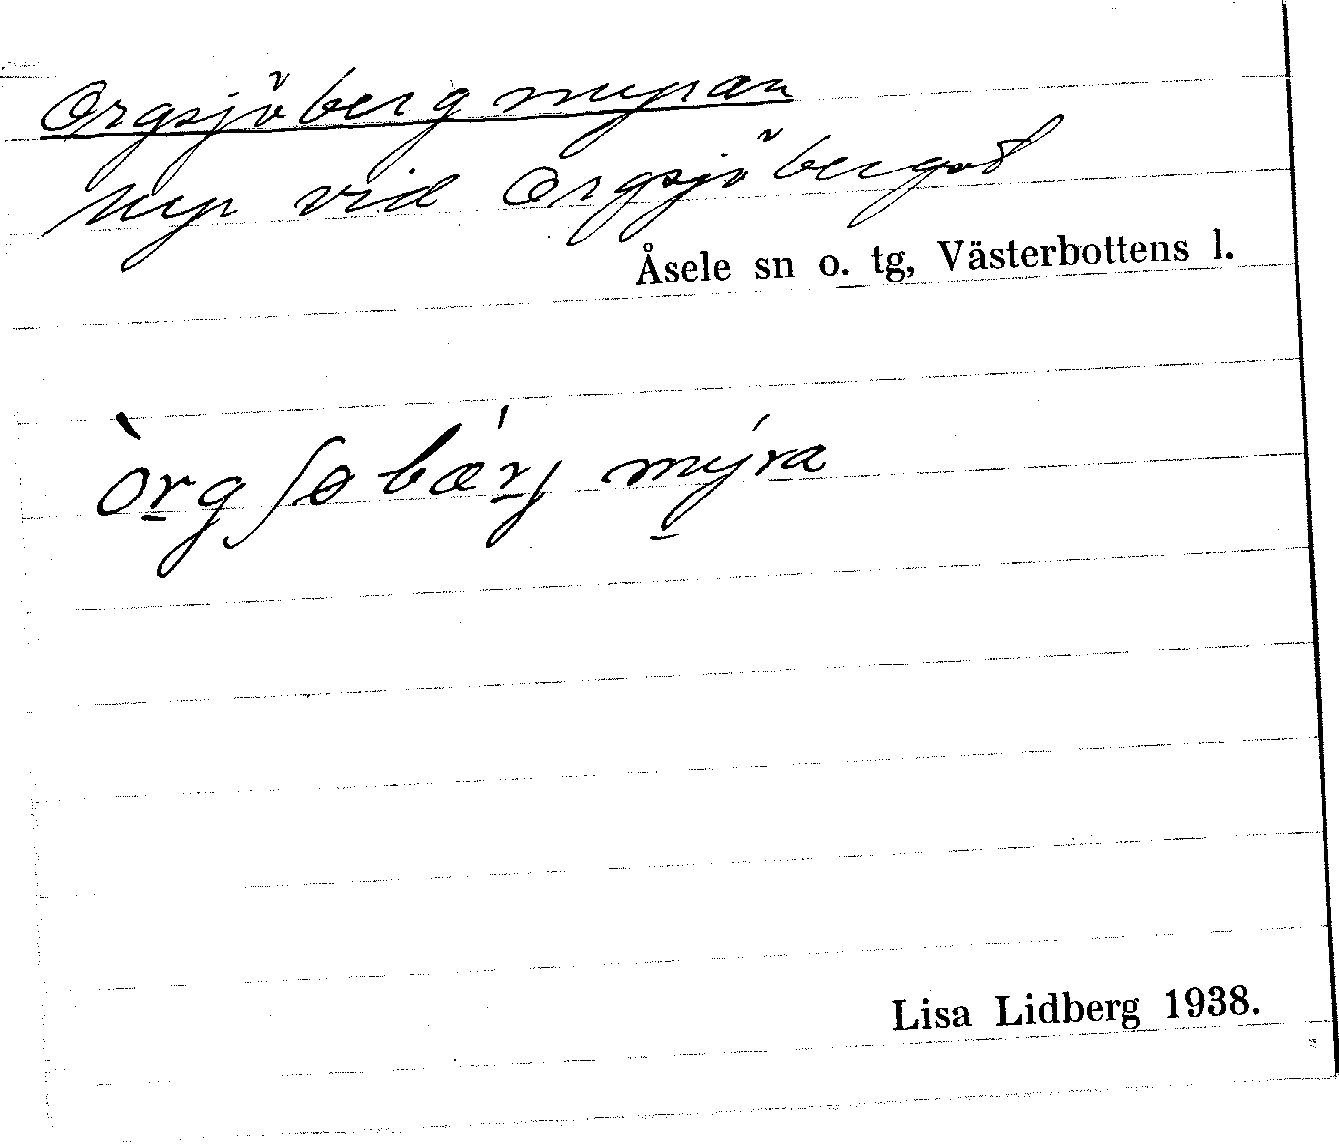 Orgsjöbergmyran
Myr vid Orgsjöberget
Åsele sn o. tg, Västerbottens l.
òrgʃobǽrj mýra
Lisa Lidberg 1938.